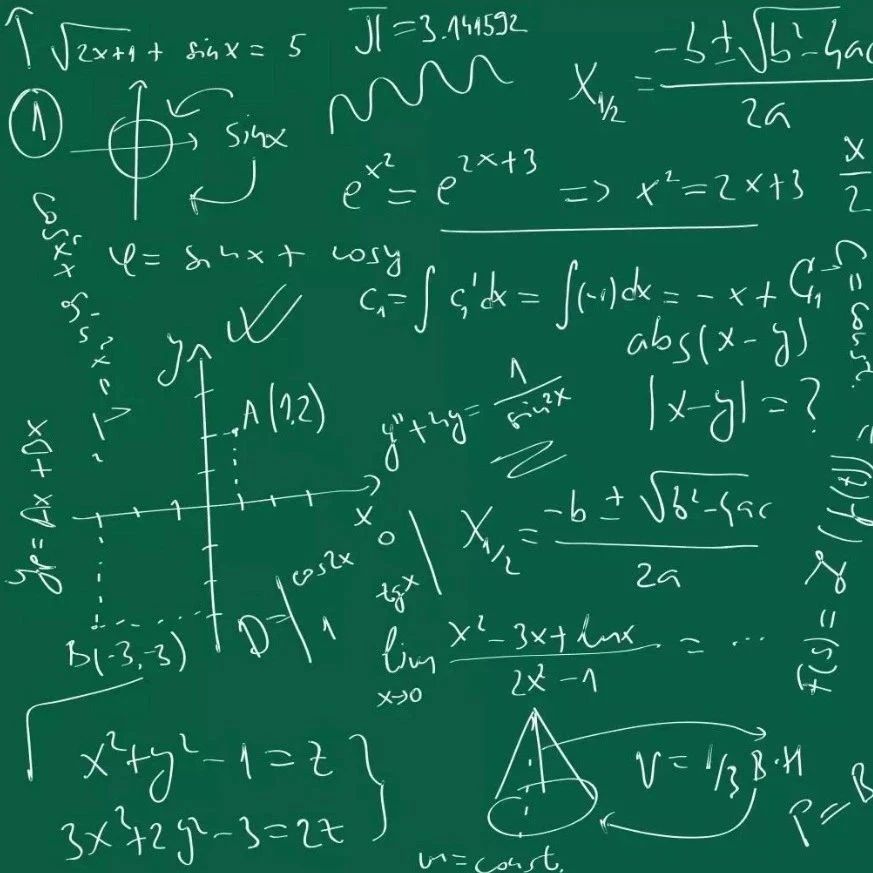 √2x+1 + sinx = 5
π = 3.141592
X₁/₂ = -b ± √b² - 4ac / 2a
1
sinx
e^x² = e^2x+3 => x² = 2x+3
x/2
φ = sinx + cosy
C₁ = ∫ C₁' dx = ∫(-1)dx = -x + C₁
C = const.
abs(x-y)
|x-y| = ?
y
A(1,2)
y'' + 4y = 1/sin²x
x
X₁/₂ = -b ± √b² - 4ac / 2a
B(-3,-3)
D = | cos2x 1
0 tgx |
lim x→0 x² - 3x + lnx / 2x² - 1 = ...
x² + y² - 1 = z
3x³ + 2y² - 3 = 2z
V = 1/3 B·H
P = B
m = const.